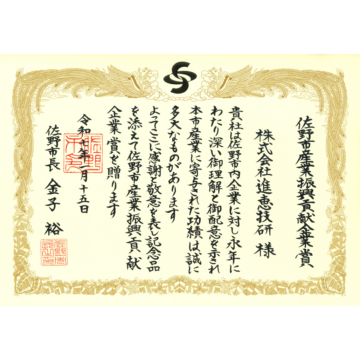 佐野市産業振興貢献企業賞
株式会社進恵技研 様
貴社は佐野市内企業に対し永年に
わたり深い御理解と御配意を示され
本市産業に寄与された功績は誠に
多大なものがあります
よってここに感謝と敬意を表し記念品
を添えて佐野市産業振興貢献
企業賞を贈ります
令和七年一月十五日
佐野市長 金子 裕